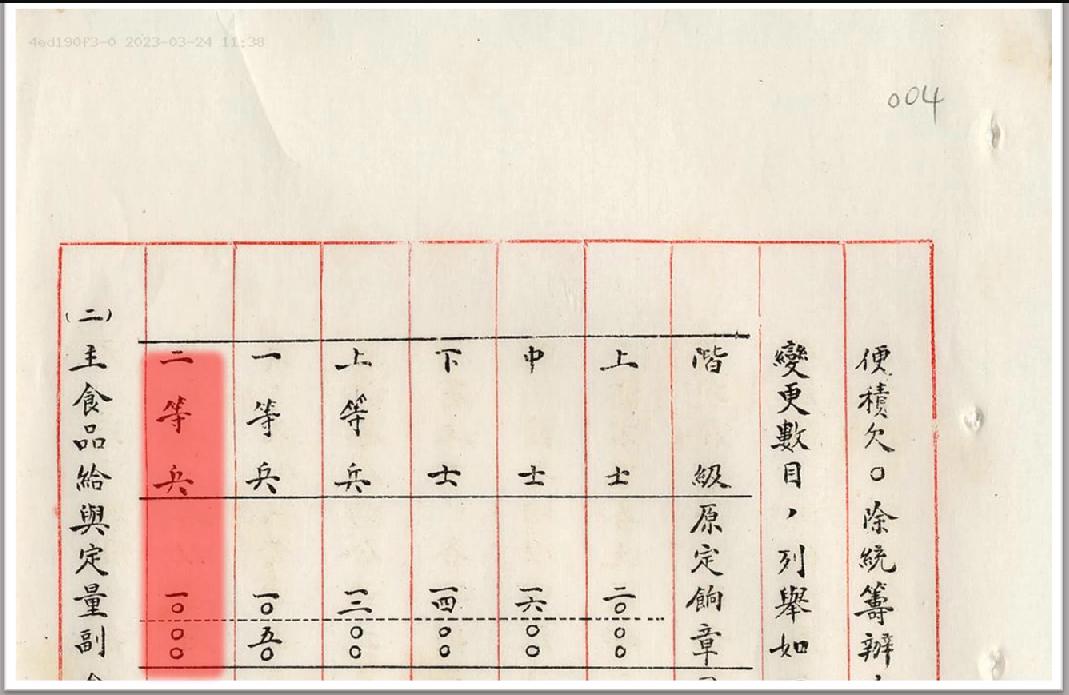 4ed190f3-0 2023-03-24 11:38
004
便積欠。除統籌辦
變更數目，列舉如
階級 原定餉章
上士 二〇〇〇
中士 一六〇〇
下士 一四〇〇
上等兵 一二〇〇
一等兵 一〇五〇
二等兵 一〇〇〇
(二)主食品給與定量副